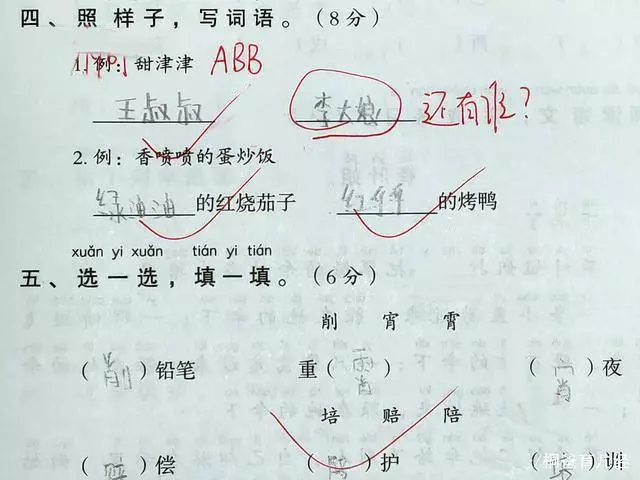 四、照样子，写词语。（8分）
1. 例：甜津津 ABB
王叔叔 李大娘 还有谁？
2. 例：香喷喷的蛋炒饭
绿油油的红烧茄子 红的烤鸭
xuǎn yi xuǎn tián yi tián
五、选一选，填一填。（6分）
削 宵 霄
（削）铅笔 重（霄） （宵）夜
培 赔 陪
（）偿 （陪）护 （）训